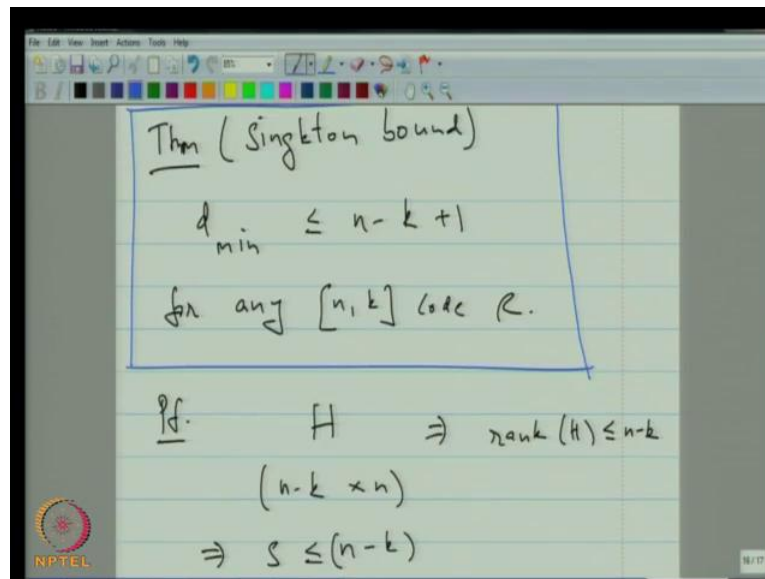 File Edit View Insert Actions Tools Help
B I
Thm (Singleton bound)
d_min ≤ n - k + 1
for any [n, k] code C.
Pf. H ⇒ rank (H) ≤ n-k
(n-k × n)
⇒ S ≤ (n-k)
NPTEL
16/17